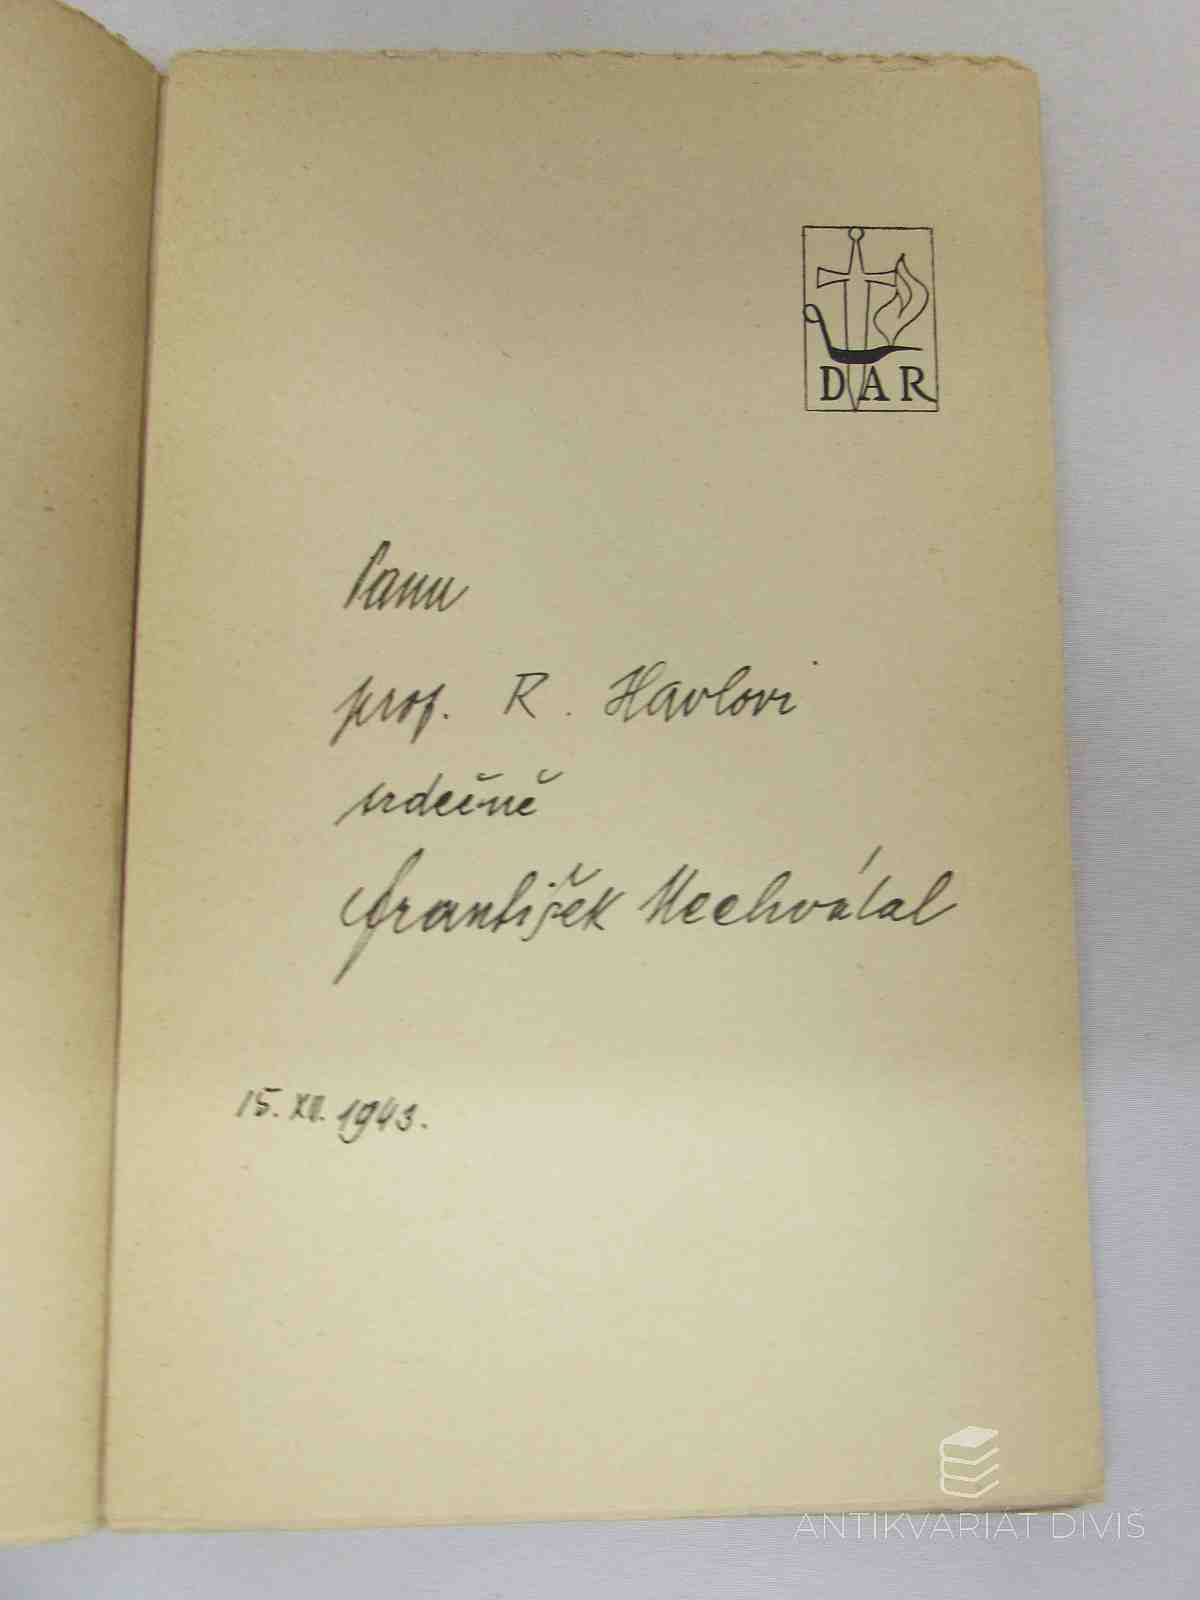 DAR
Panu
prof. R. Havlovi
srdečně
František Nechvátal
15. XII. 1943.
ANTIKVARIÁT DIVIŠ